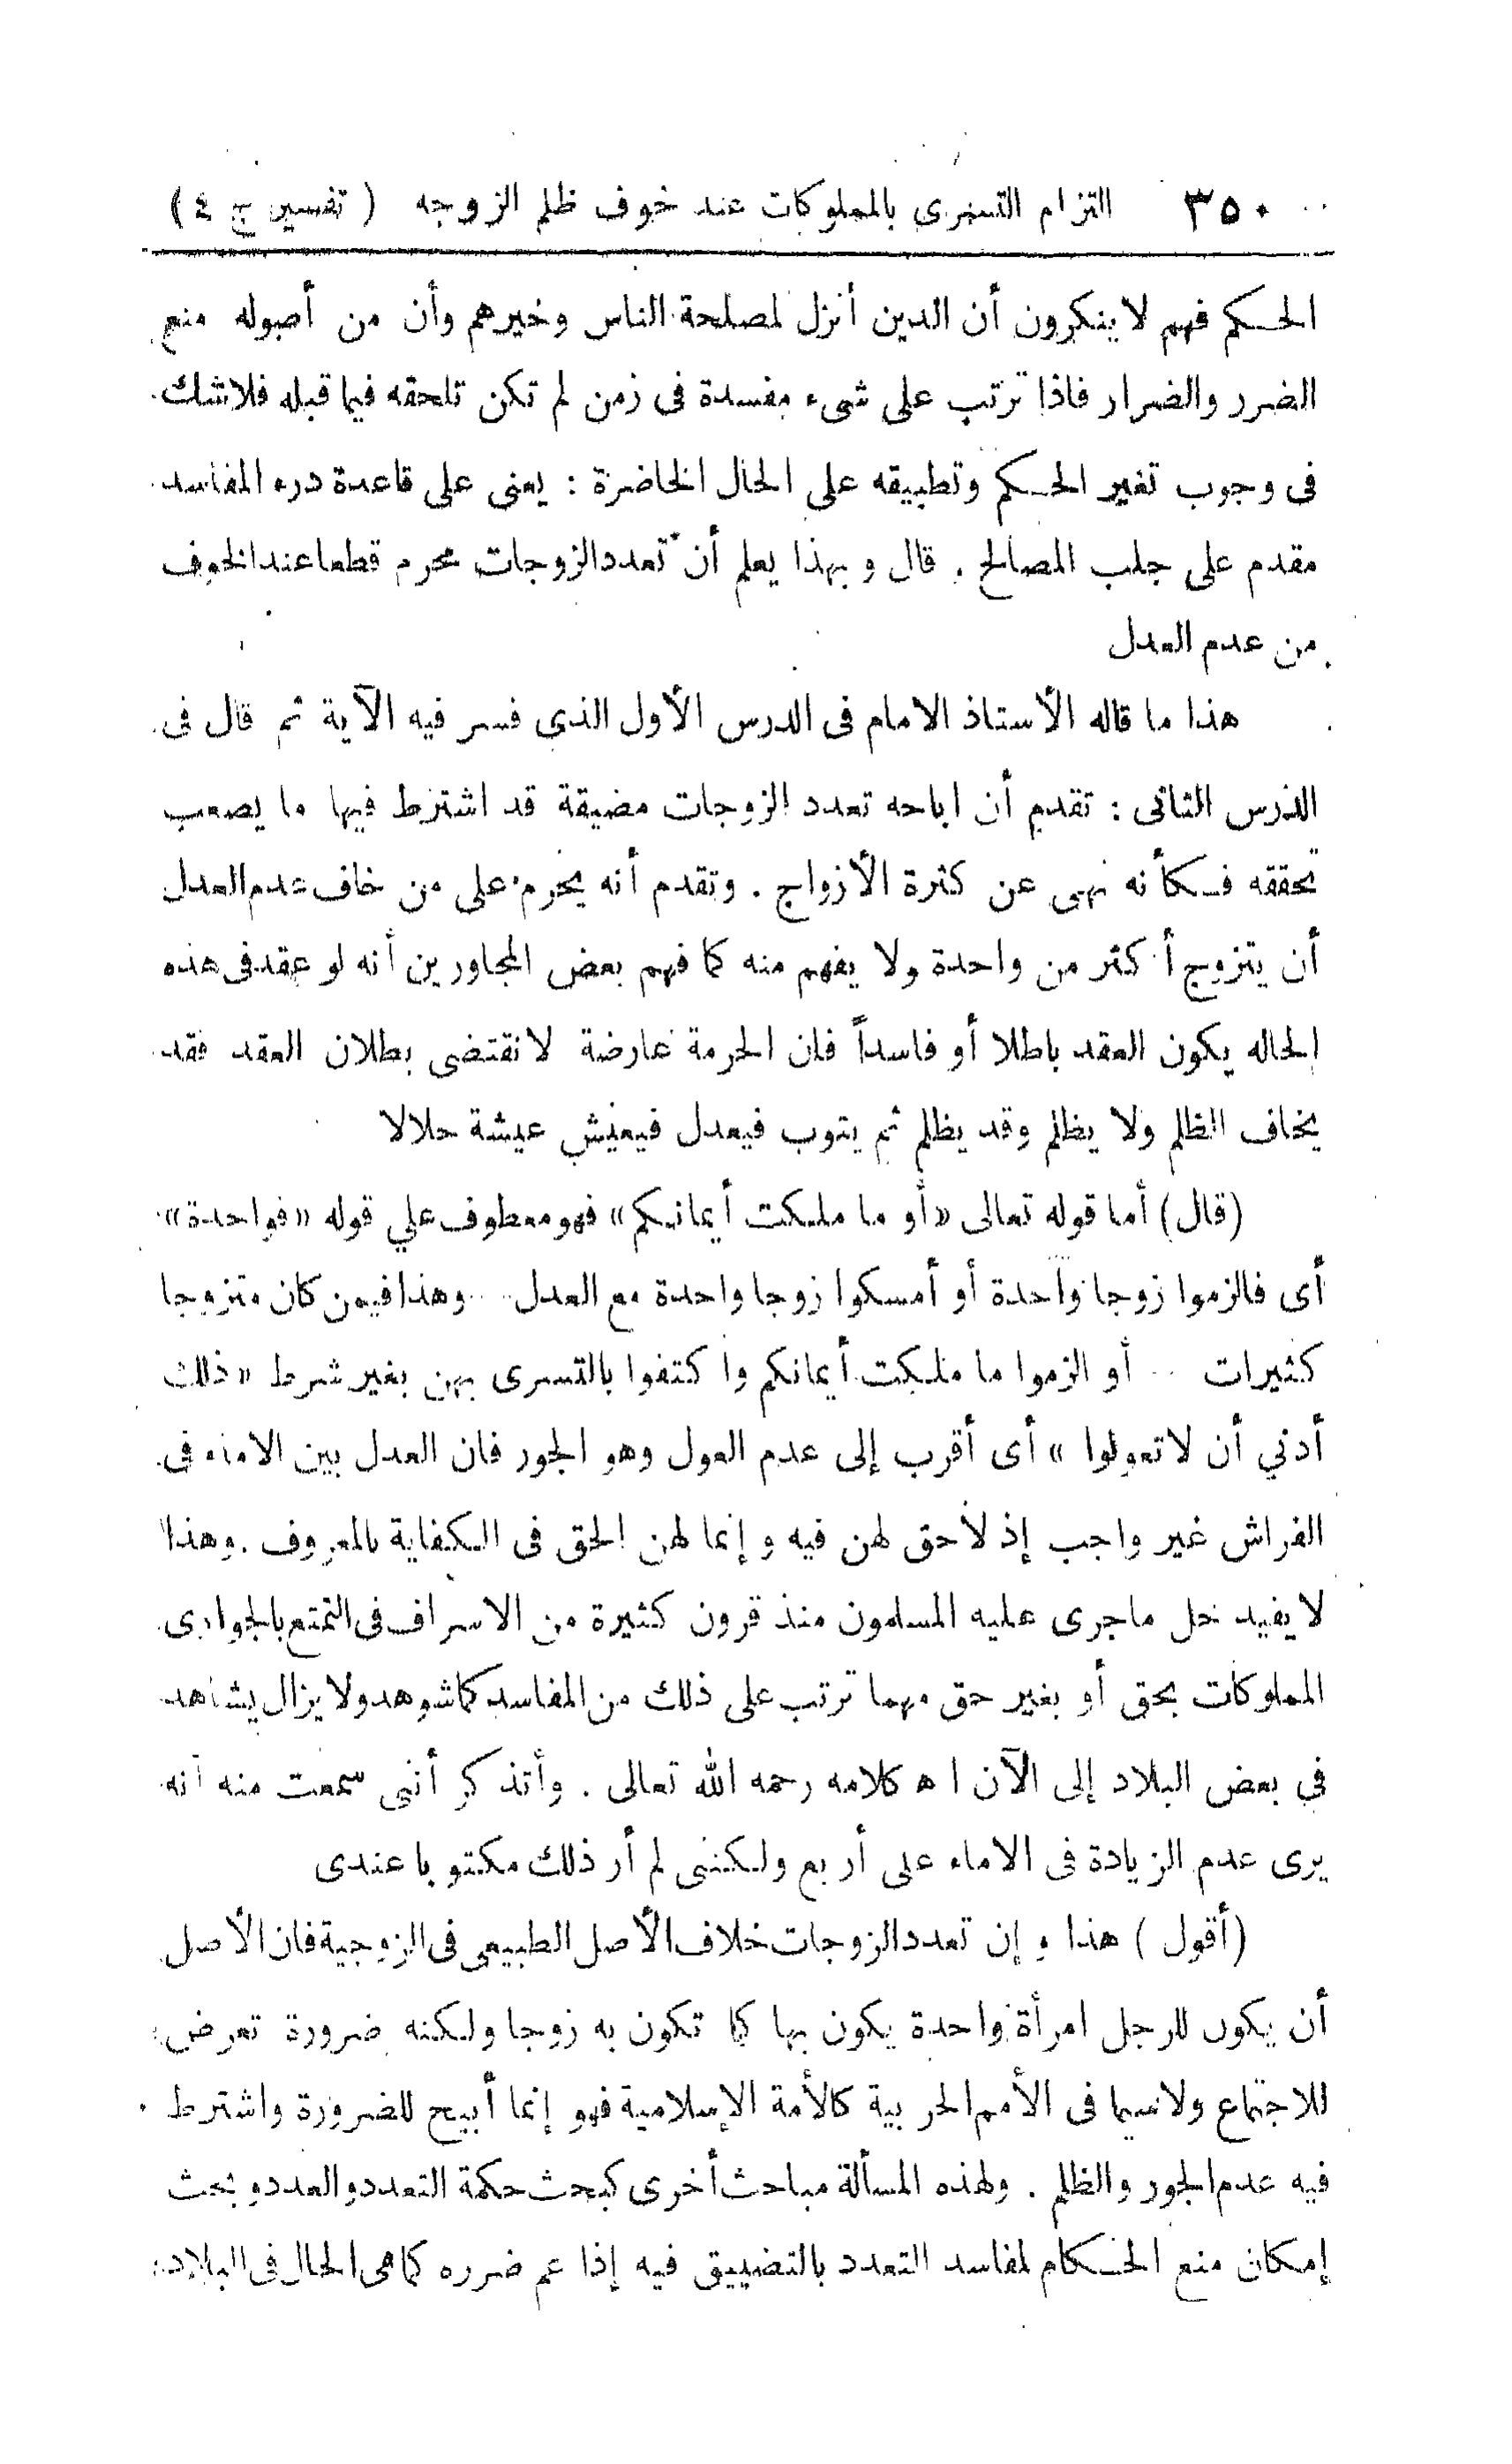 ٣٥٠ التزام التسرى بالمملوكات عند خوف ظلم الزوجه ( تفسير ج ٤ )
الحكم فهم لا ينكرون أن الدين أنزل لمصلحة الناس وخيرهم وأن من أصوله منع
الضرر والضرار فاذا ترتب على شىء مفسدة فى زمن لم تكن تلحقه فيما قبله فلا شك
فى وجوب تغير الحكم وتطبيقه على الحال الحاضرة : يعنى على قاعدة درء المفاسد
مقدم على جلب المصالح . قال وبهذا يعلم أن تعدد الزوجات محرم قطعا عند الخوف
من عدم العدل
هذا ما قاله الأستاذ الامام فى الدرس الأول الذى فسر فيه الآية ثم قال فى
الدرس الثانى : تقدم أن اباحه تعدد الزوجات مضيقة قد اشترط فيها ما يصعب
تحققه فكأنه نهى عن كثرة الأزواج . وتقدم أنه يحرم على من خاف عدم العدل
أن يتزوج أكثر من واحدة ولا يفهم منه كما فهم بعض المجاورين أنه لو عقد فى هذه
الحاله يكون العقد باطلا أو فاسداً فان الحرمة عارضة لا تقتضى بطلان العقد فقد
يخاف الظلم ولا يظلم وقد يظلم ثم يتوب فيعدل فيعيش عيشة حلالا
(قال) أما قوله تعالى «أو ما ملكت أيمانكم» فهو معطوف علي قوله «فواحدة»
أى فالزموا زوجا واحدة أو أمسكوا زوجا واحدة مع العدل .. وهذا فيمن كان متزوجا
كثيرات .. أو الزموا ما ملكت أيمانكم واكتفوا بالتسرى بهن بغير شرط « ذلك
أدني أن لا تعولوا » أى أقرب إلى عدم العول وهو الجور فان العدل بين الاماء فى
الفراش غير واجب إذ لا حق لهن فيه وإنما لهن الحق فى الكفاية بالمعروف . وهذا
لا يفيد حل ما جرى عليه المسلمون منذ قرون كثيرة من الاسراف فى التمتع بالجوارى
المملوكات بحق أو بغير حق مهما ترتب على ذلك من المفاسد كما شوهد ولا يزال يشاهد
في بعض البلاد إلى الآن ا ه كلامه رحمه الله تعالى . وأتذكر أننى سمعت منه أنه
يرى عدم الزيادة فى الاماء على أربع ولكننى لم أر ذلك مكتوبا عندى
(أقول ) هذا وإن تعدد الزوجات خلاف الأصل الطبيعى فى الزوجية فان الأصل
أن يكون للرجل امرأة واحدة يكون بها كما تكون به زوجا ولكنه ضرورة تعرض
للاجتماع ولا سيما فى الأمم الحربية كالأمة الإسلامية فهو إنما أبيح للضرورة واشترط
فيه عدم الجور والظلم . ولهذه المسألة مباحث أخرى كبحث حكمة التعدد والعدد وبحث
إمكان منع الحكام لمفاسد التعدد بالتضييق فيه إذا عم ضرره كما هى الحال فى البلاد